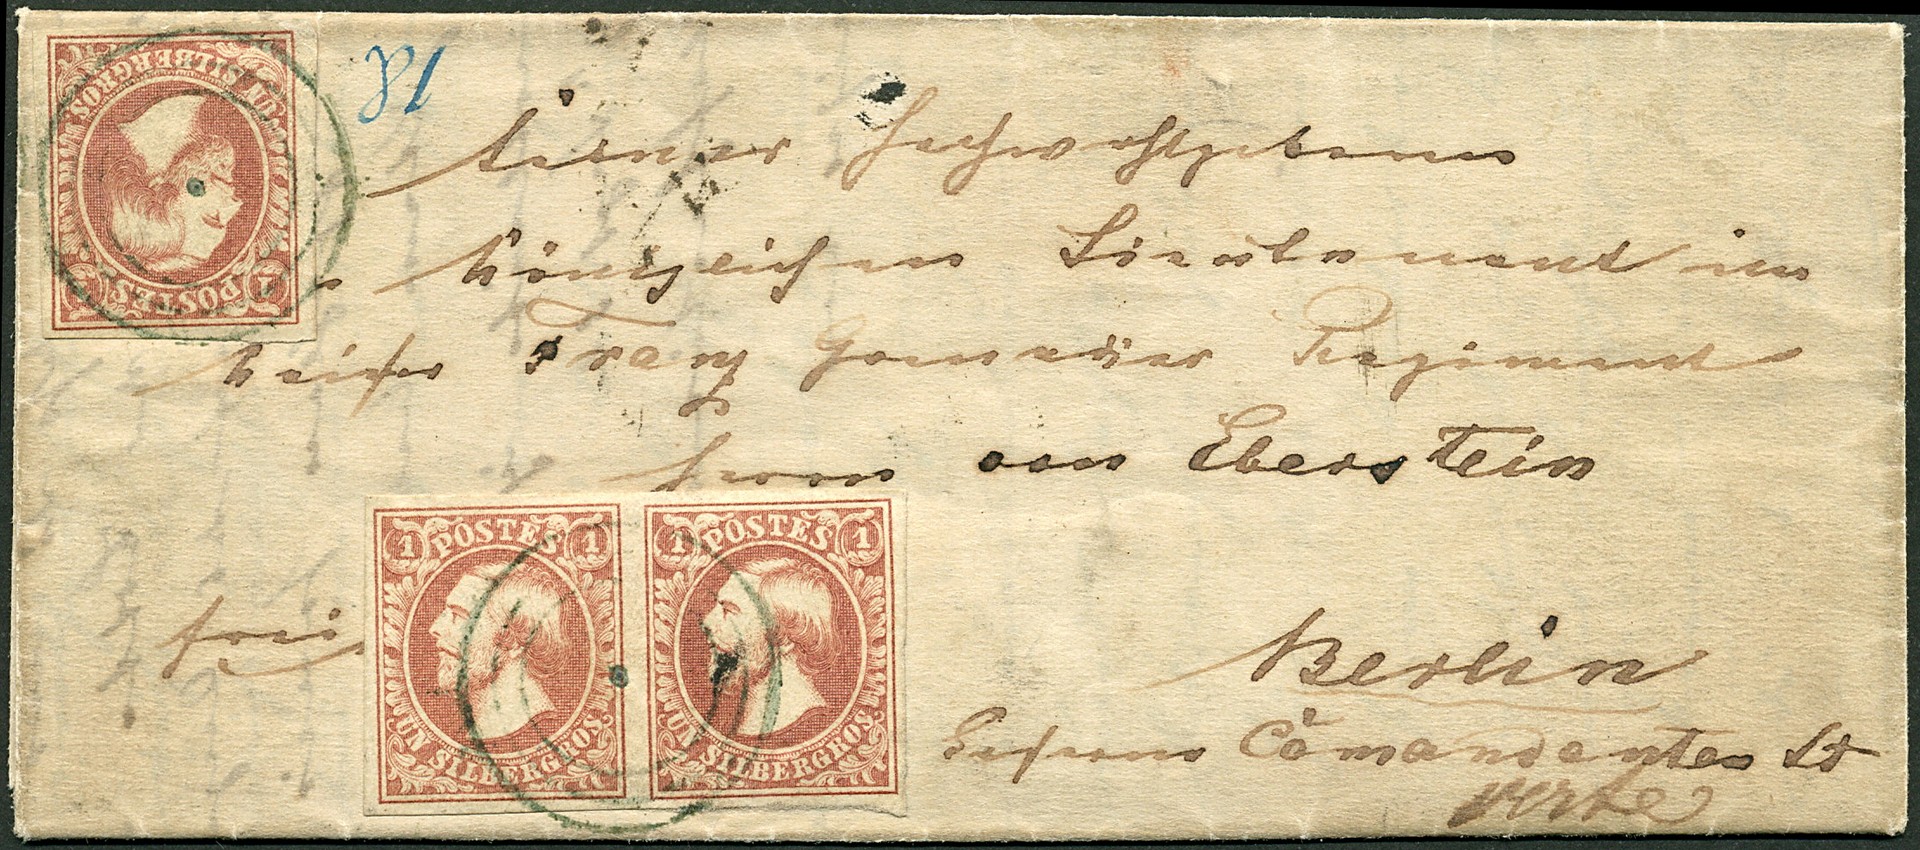 1 POSTES 1
UN SILBERGROS
Seiner Hochwohlgeboren
Königlichen Lieutenant im
Kaiser Franz Grenadier Regiment
Herrn von Eberstein
frei
1 POSTES 1 1 POSTES 1
UN SILBERGROS. UN SILBERGROS.
Berlin
Comandanten St